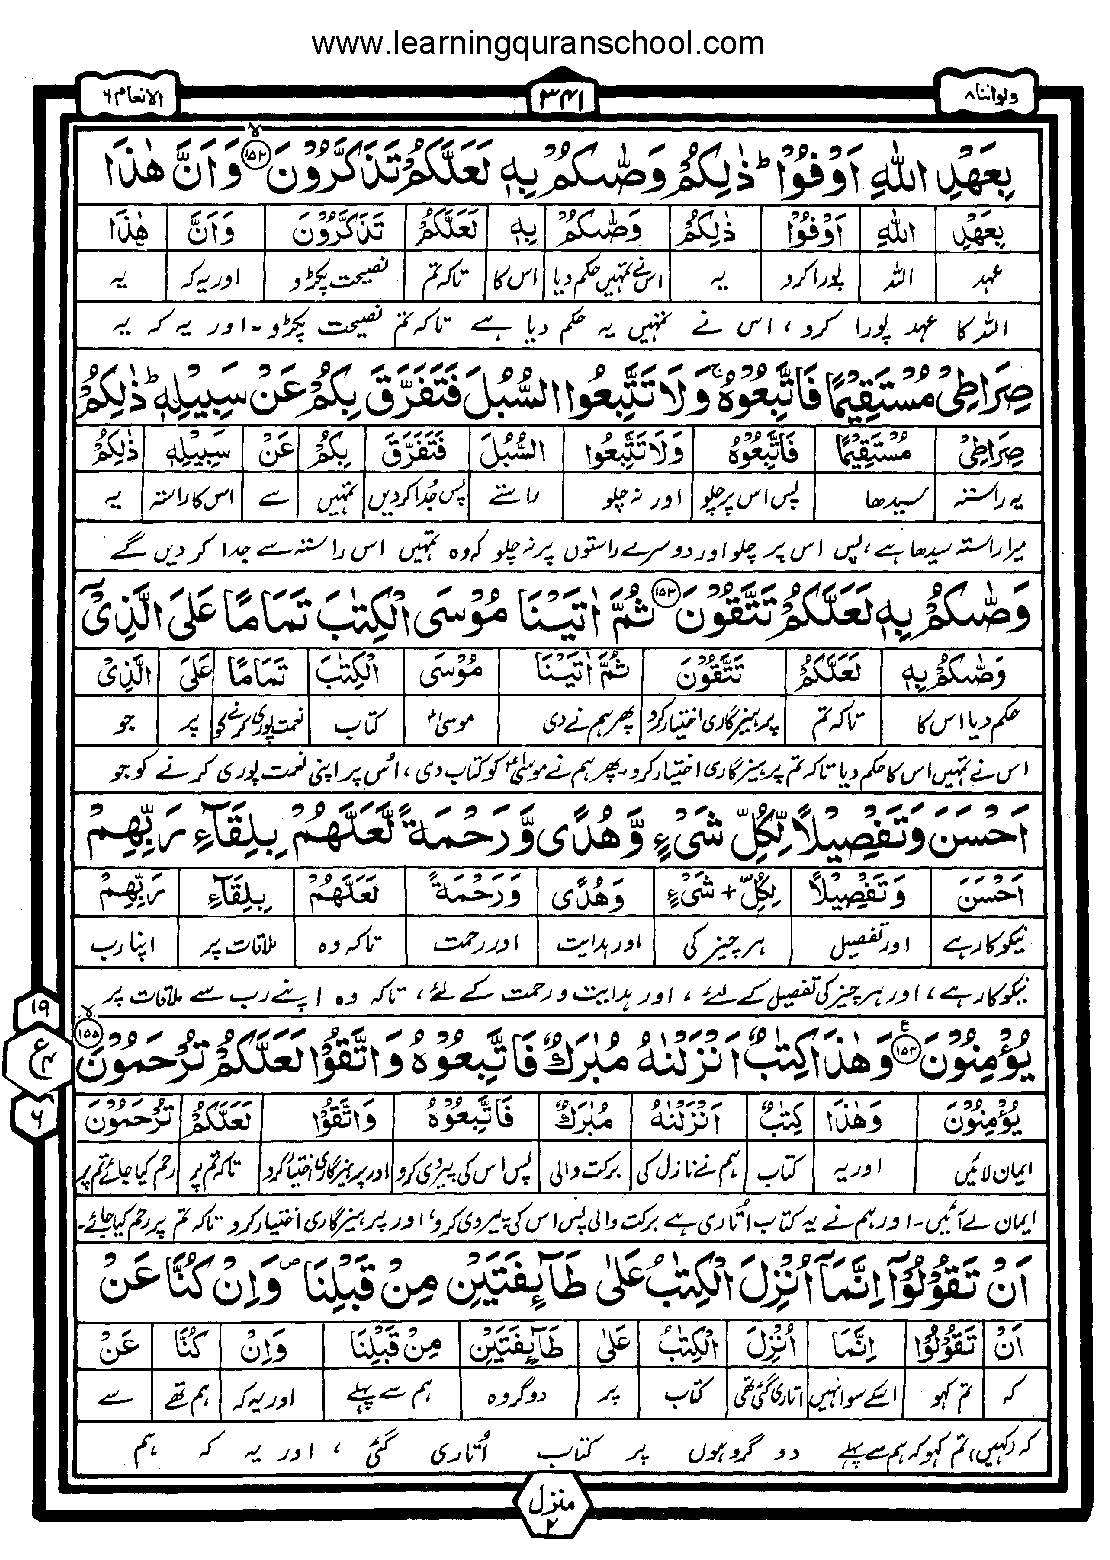 www.learningquranschool.com
ولواننا ۸ ۳۴۱ الانعام ۶
بِعَهْدِ اللّٰهِ اَوْفُوْا ؕ ذٰلِكُمْ وَصّٰىكُمْ بِهٖ لَعَلَّكُمْ تَذَكَّرُوْنَ ۙ﴿۱۵۲﴾ وَ اَنَّ هٰذَا
بِعَهْدِ اللّٰهِ اَوْفُوْا ذٰلِكُمْ وَصّٰىكُمْ بِهٖ لَعَلَّكُمْ تَذَكَّرُوْنَ وَاَنَّ هٰذَا
عہد اللہ پورا کرو یہ اس نے تمہیں حکم دیا اس کا تاکہ تم نصیحت پکڑو اور یہ کہ یہ
اللہ کا عہد پورا کرو ، اس نے تمہیں یہ حکم دیا ہے تاکہ تم نصیحت پکڑو ۔ اور یہ کہ یہ
صِرَاطِیْ مُسْتَقِیْمًا فَاتَّبِعُوْهُ ۚ وَلَا تَتَّبِعُوا السُّبُلَ فَتَفَرَّقَ بِكُمْ عَنْ سَبِیْلِهٖ ؕ ذٰلِكُمْ
صِرَاطِیْ مُسْتَقِیْمًا فَاتَّبِعُوْهُ وَلَا تَتَّبِعُوا السُّبُلَ فَتَفَرَّقَ بِكُمْ عَنْ سَبِیْلِهٖ ذٰلِكُمْ
یہ راستہ سیدھا پس اس پر چلو اور نہ چلو راستے پس جدا کردیں تمہیں سے اس کا راستہ یہ
میرا راستہ سیدھا ہے ، پس اس پر چلو اور دوسرے راستوں پر نہ چلو کہ وہ تمہیں اس راستہ سے جدا کر دیں گے
وَصّٰىكُمْ بِهٖ لَعَلَّكُمْ تَتَّقُوْنَ ﴿۱۵۳﴾ ثُمَّ اٰتَیْنَا مُوْسَی الْكِتٰبَ تَمَامًا عَلَی الَّذِیْۤ
وَصّٰىكُمْ بِهٖ لَعَلَّكُمْ تَتَّقُوْنَ ثُمَّ اٰتَیْنَا مُوْسَی الْكِتٰبَ تَمَامًا عَلَی الَّذِیْ
حکم دیا اس کا تاکہ تم پرہیزگاری اختیار کرو پھر ہم نے دی موسیٰؑ کتاب نعمت پوری کرنے کو پر جو
اس نے تمہیں اس کا حکم دیا تاکہ تم پرہیزگاری اختیار کرو۔ پھر ہم نے موسیٰؑ کو کتاب دی ، اُس پر اپنی نعمت پوری کرنے کو جو
اَحْسَنَ وَ تَفْصِیْلًا لِّكُلِّ شَیْءٍ وَّ هُدًی وَّ رَحْمَةً لَّعَلَّهُمْ بِلِقَآءِ رَبِّهِمْ
اَحْسَنَ وَتَفْصِیْلًا لِكُلِّ + شَیْءٍ وَهُدًی وَرَحْمَةً لَعَلَّهُمْ بِلِقَآءِ رَبِّهِمْ
نیکوکار ہے اور تفصیل ہر چیز کی اور ہدایت اور رحمت تاکہ وہ ملاقات پر اپنا رب
نیکوکار ہے ، اور ہر چیز کی تفصیل کے لئے ، اور ہدایت و رحمت کے لئے ، تاکہ وہ اپنے رب سے ملاقات پر
یُؤْمِنُوْنَ ﴿۱۵۴﴾ؑ وَ هٰذَا كِتٰبٌ اَنْزَلْنٰهُ مُبٰرَكٌ فَاتَّبِعُوْهُ وَ اتَّقُوْا لَعَلَّكُمْ تُرْحَمُوْنَ ۙ﴿۱۵۵﴾
۱۹
ع
۶
یُؤْمِنُوْنَ وَهٰذَا كِتٰبٌ اَنْزَلْنٰهُ مُبٰرَكٌ فَاتَّبِعُوْهُ وَاتَّقُوْا لَعَلَّكُمْ تُرْحَمُوْنَ
ایمان لائیں اور یہ کتاب ہم نے نازل کی برکت والی پس اس کی پیروی کرو اور پرہیزگاری اختیار کرو تاکہ تم پر رحم کیا جائے تم پر
ایمان لے آئیں ۔ اور ہم نے یہ کتاب اُتاری ہے برکت والی پس اس کی پیروی کرو اور پرہیزگاری اختیار کرو تاکہ تم پر رحم کیا جائے۔
اَنْ تَقُوْلُوْۤا اِنَّمَاۤ اُنْزِلَ الْكِتٰبُ عَلٰی طَآىِٕفَتَیْنِ مِنْ قَبْلِنَا ۪ وَ اِنْ كُنَّا عَنْ
اَنْ تَقُوْلُوْا اِنَّمَا اُنْزِلَ الْكِتٰبُ عَلٰی طَآىِٕفَتَیْنِ مِنْ قَبْلِنَا وَاِنْ كُنَّا عَنْ
کہ تم کہو اسکے سوا نہیں اتاری گئی تھی کتاب پر دو گروہ ہم سے پہلے اور یہ کہ ہم تھے سے
کہ (کہیں) تم کہو کہ ہم سے پہلے دو گروہوں پر کتاب اُتاری گئی ، اور یہ کہ ہم
منزل ۲